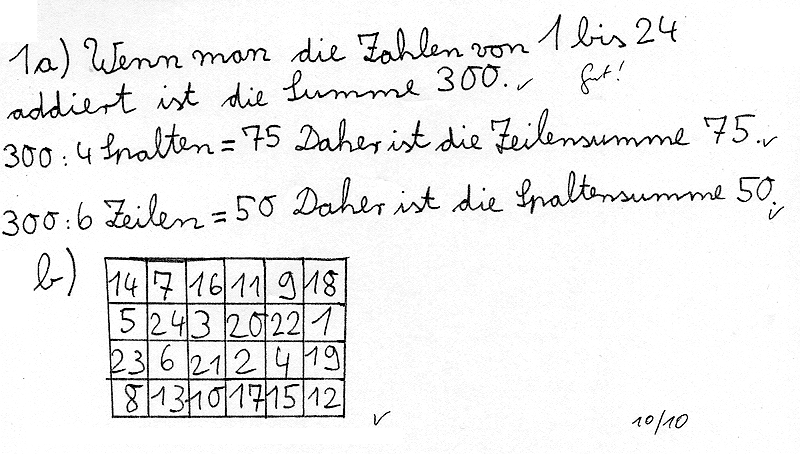 1a) Wenn man die Zahlen von 1 bis 24
addiert ist die Summe 300. ✓ gut!
300 : 4 Spalten = 75 Daher ist die Zeilensumme 75. ✓
300 : 6 Zeilen = 50 Daher ist die Spaltensumme 50. ✓
b)
14 7 16 11 9 18
5 24 3 20 22 1
23 6 21 2 4 19
8 13 10 17 15 12
✓ 10/10